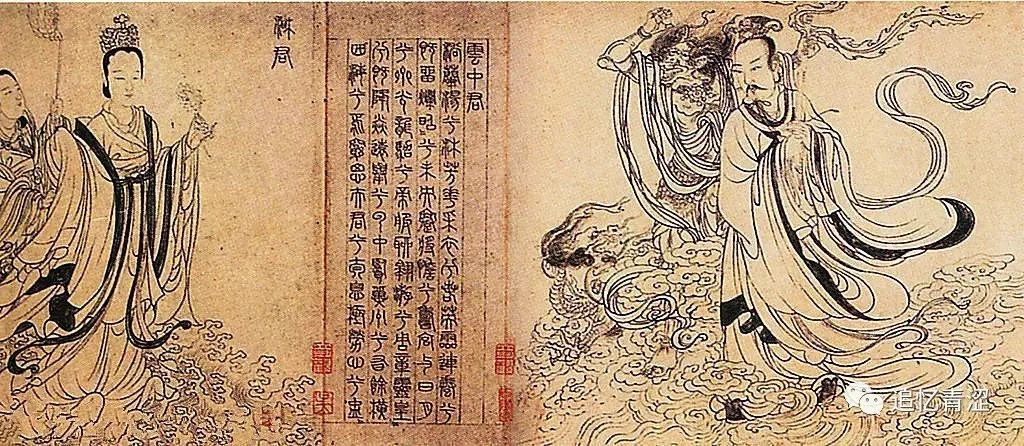 雲中君
浴蘭湯兮沐芳華采衣兮若英靈連蜷兮
既留爛昭昭兮未央蹇將憺兮壽宮與日月
兮齊光龍駕兮帝服聊翱遊兮周章靈皇皇
兮既降猋遠舉兮雲中覽冀州兮有餘橫
四海兮焉窮思夫君兮太息極勞心兮
湘君
追忆青涩